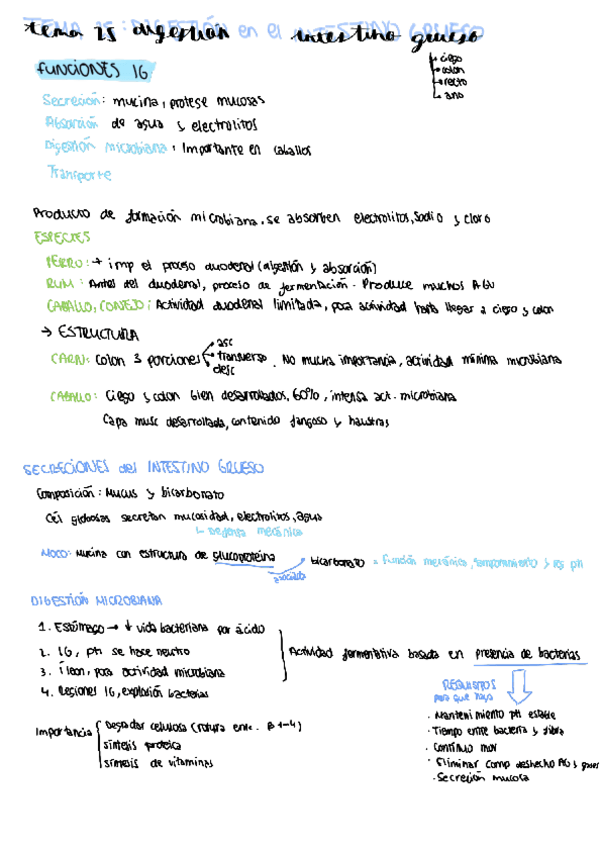 tema 25 digestión en el intestino grueso
ciego
colon
recto
ano
FUNCIONES IG
Secreción: mucina, protege mucosas
Absorción de agua y electrolitos
Digestión microbiana: Importante en caballos
Transporte
Producto de formación microbiana. se absorben electrolitos, sodio y cloro
ESPECIES
PERRO: + imp el proceso duodenal (digestión y absorción)
RUM: Antes del duodenal, proceso de fermentación. Produce muchos AGV
CABALLO, CONEJO: Actividad duodenal limitada, poca actividad hasta llegar a ciego y colon
→ ESTRUCTURA
CARN: Colon 3 porciones asc transverso desc. No mucha importancia, actividad mínima microbiana
CABALLO: Ciego y colon bien desarrollados, 60%, intensa act. microbiana
Capa musc desarrollada, contenido fangoso y haustras
SECRECIONES del INTESTINO GRUESO
Composición: Mucus y bicarbonato
Cél globosas secretan mucosidad, electrolitos, agua
mecánica
MOCO: Mucina con estructura de glucoproteína bicarbonato = función mecánica, temponamiento y es pH
asociada
DIGESTIÓN MICROBIANA
1. Estómago → ↓ vida bacteriana por ácido
2. IG, pH se hace neutro
3. Íleon, poca actividad microbiana
4. Regiones IG, explosión bacterias
Actividad fermentativa basada en presencia de bacterias
REQUISITOS
para que haya
· Mantenimiento pH estable
· Tiempo entre bacteria y fibra
· Continuo mov
· Eliminar comp deshecho AG y gases
· Secreción mucosa
Importancia Degradar celulosa (rotura enlc. β 1-4)
síntesis proteica
síntesis de vitaminas